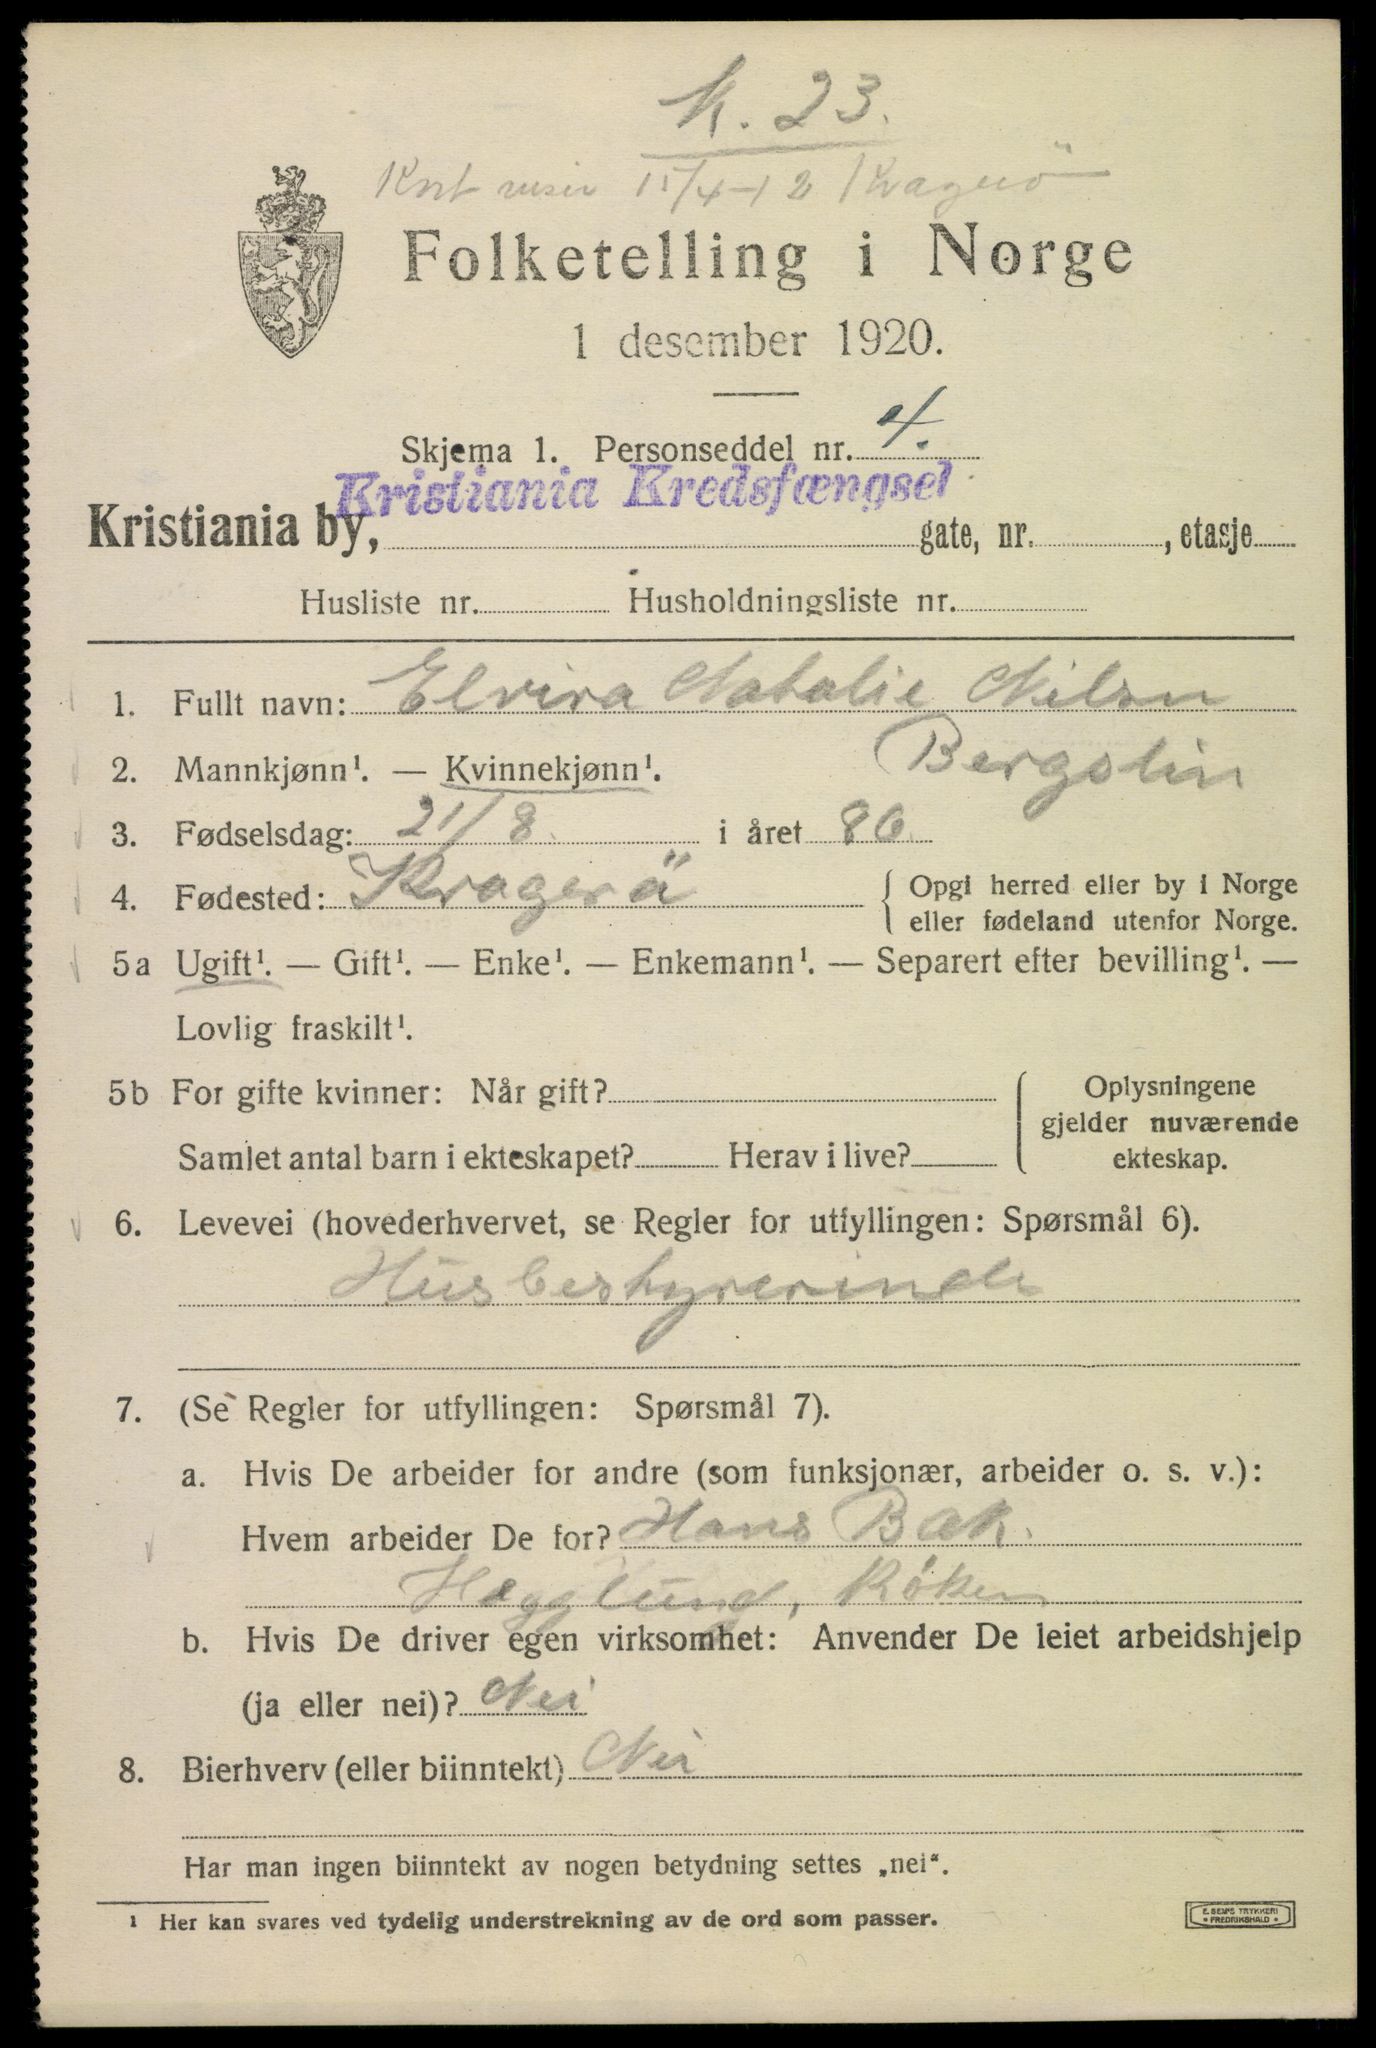 K. 23.
Kort 11/4-12 Kragerö
Folketelling i Norge
1 desember 1920.
Skjema 1. Personseddel nr. 4.
Kristiania Kredsfængsel
Kristiania by, gate, nr. , etasje
Husliste nr. Husholdningsliste nr.
1. Fullt navn: Elvira Natalie Nilsen
Bergslin
2. Mannkjønn¹. — Kvinnekjønn¹.
3. Fødselsdag: 21/8 i året 86.
4. Fødested: Kragerö { Opgi herred eller by i Norge
eller fødeland utenfor Norge.
5a Ugift¹. — Gift¹. — Enke¹. — Enkemann¹. — Separert efter bevilling¹. —
Lovlig fraskilt¹.
5b For gifte kvinner: Når gift? Oplysningene
gjelder nuværende
Samlet antal barn i ekteskapet? Herav i live? ekteskap.
6. Levevei (hovederhvervet, se Regler for utfyllingen: Spørsmål 6).
Husbestyrerinde
7. (Se Regler for utfyllingen: Spørsmål 7).
a. Hvis De arbeider for andre (som funksjonær, arbeider o. s. v.):
Hvem arbeider De for? Hans Bak.
Hegglund, Röken
b. Hvis De driver egen virksomhet: Anvender De leiet arbeidshjelp
(ja eller nei)? Nei
8. Bierhverv (eller biinntekt) Nei
Har man ingen biinntekt av nogen betydning settes „nei“.
¹ Her kan svares ved tydelig understrekning av de ord som passer.
E. SEM'S TRYKKERI
• FREDRIKSHALD •